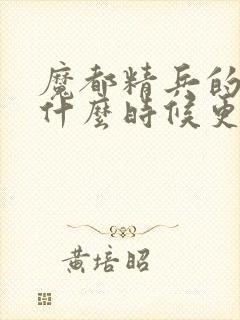 魔都精兵的
什麼時候更
黃培昭